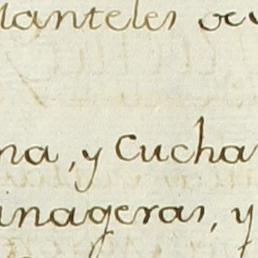 manteles
na, y Cucha
inageras, y